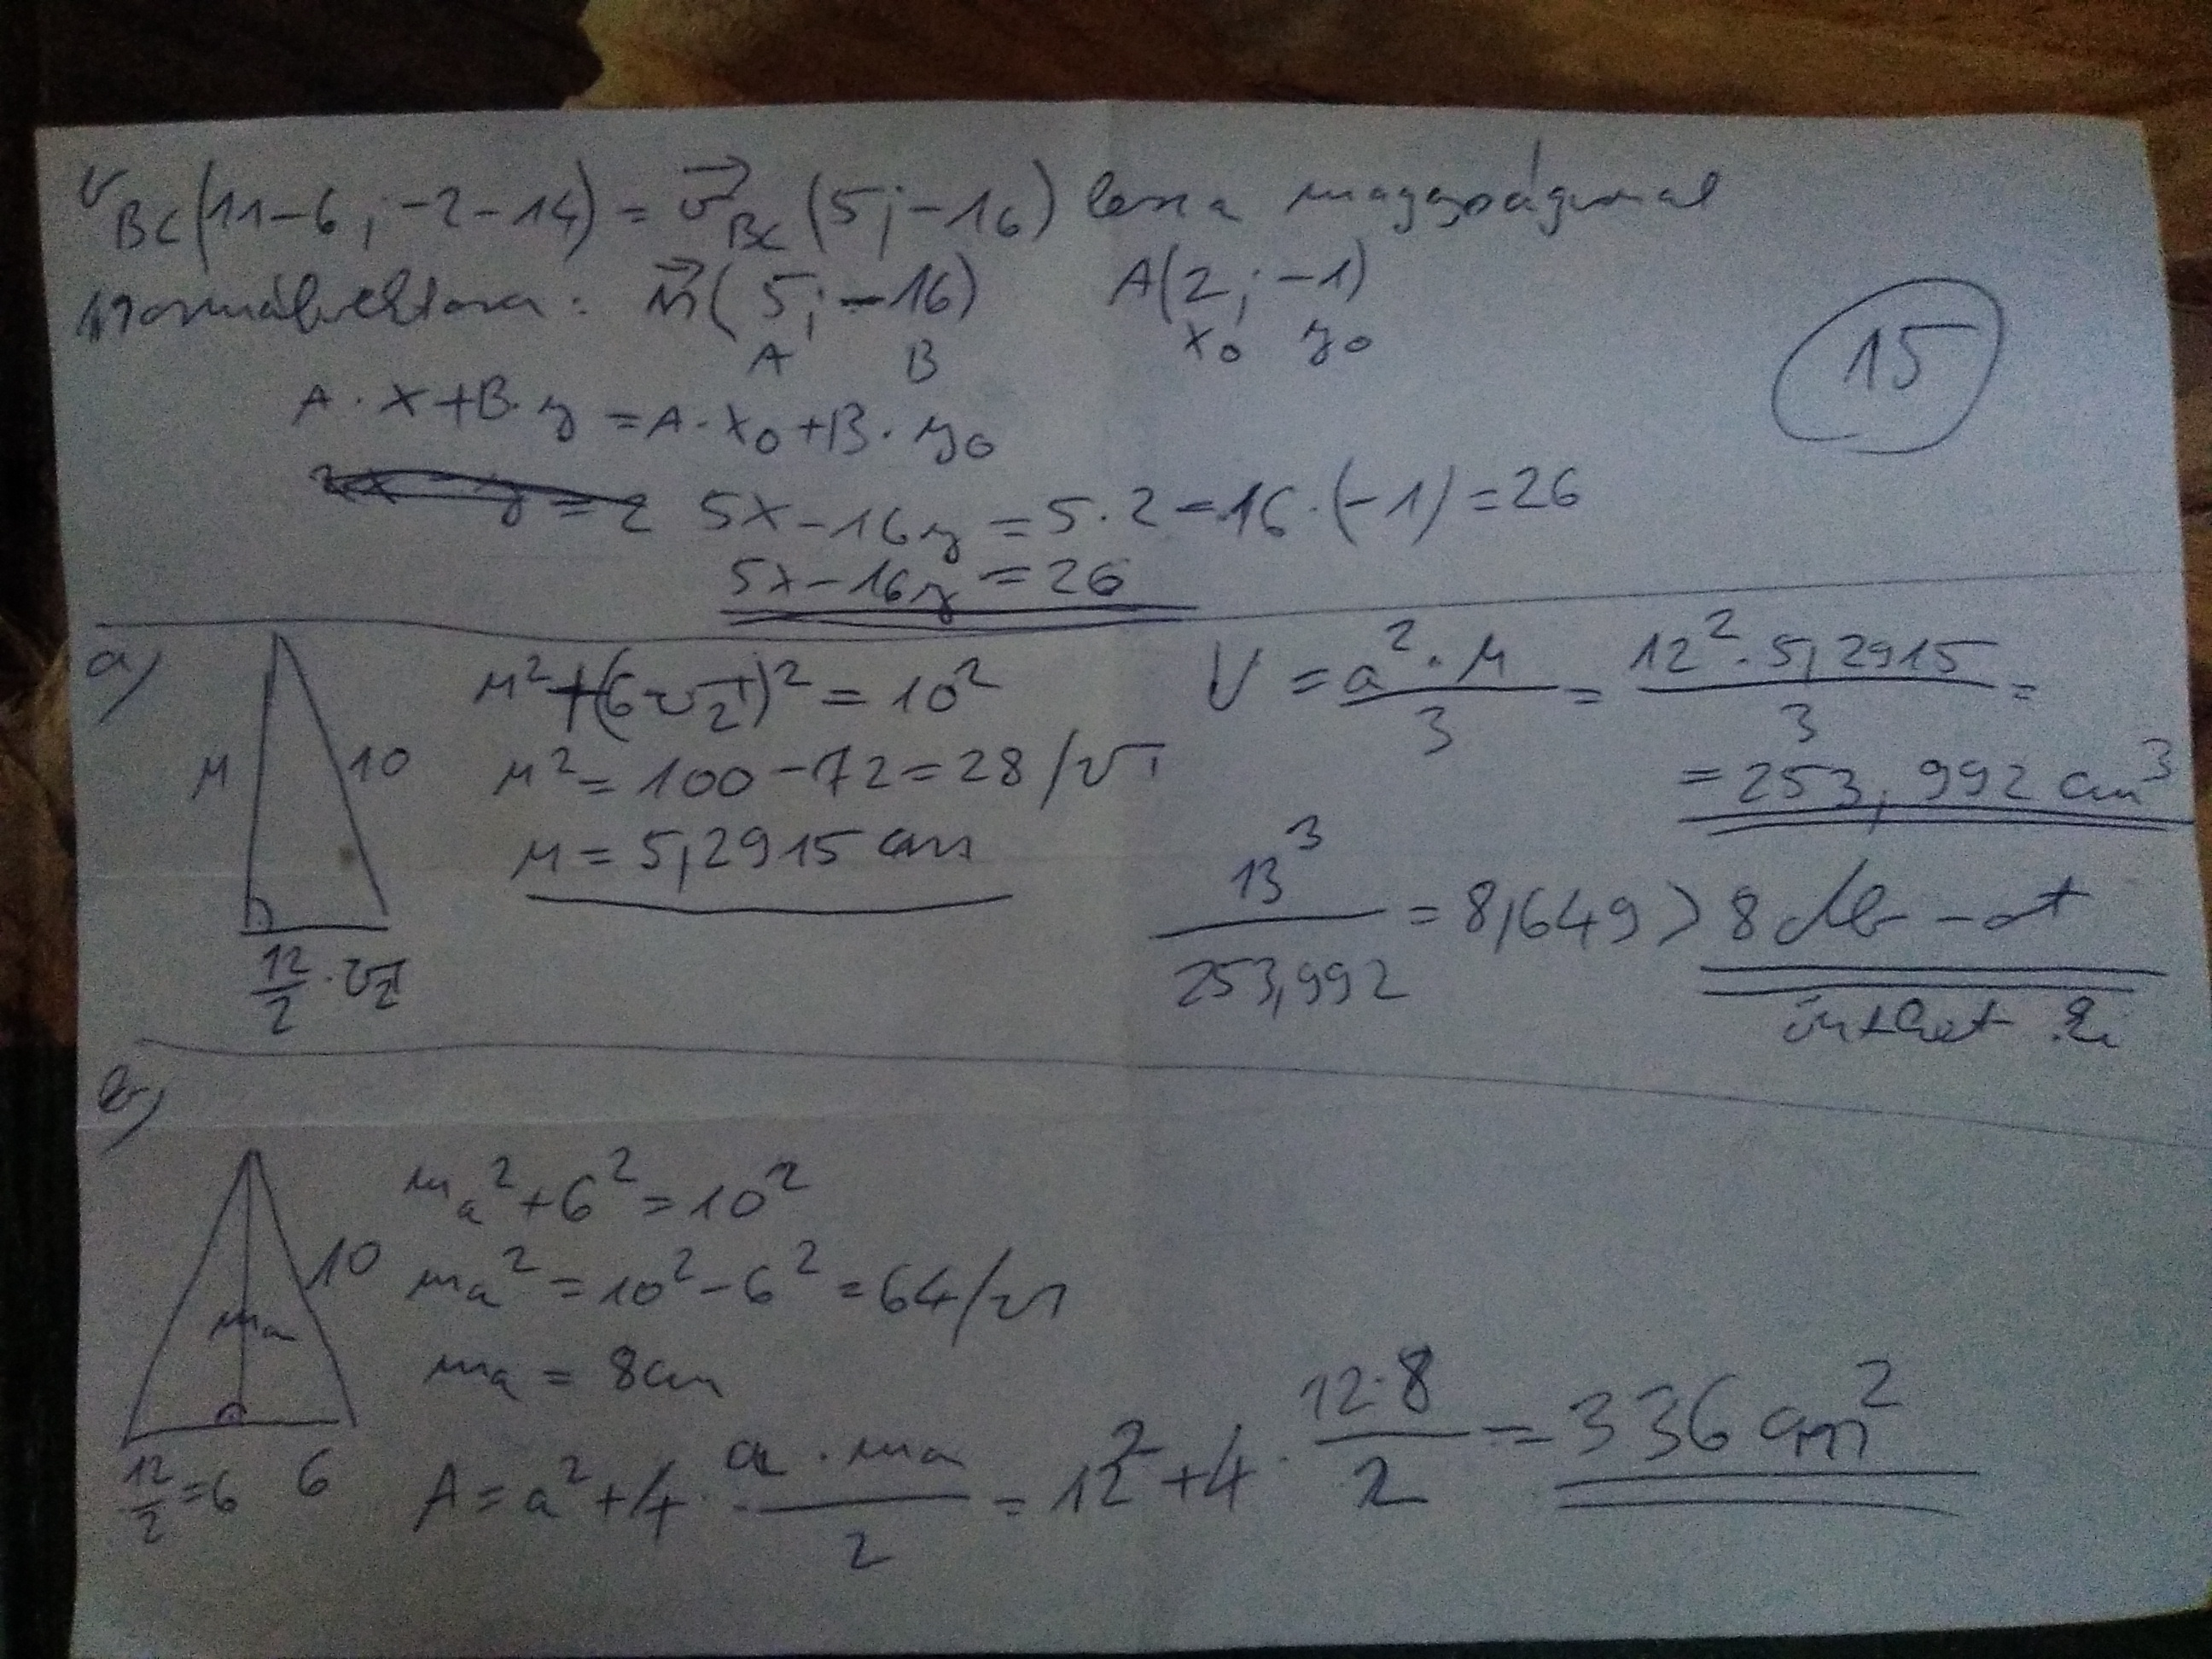 v BC (11-6; -2-14) = v⃗ BC (5; -16) lesz a magasságvonal
normálvektora: n⃗(5; -16) A(2; -1)
A B x₀ y₀
15
A·x+B·y = A·x₀+B·y₀
5x-16y = 5·2-16·(-1) = 26
5x-16y = 26
a)
M 10
12/2·√2
M²+(6√2)² = 10²
M² = 100-72 = 28 /√
M = 5,2915 cm
V = a²·M/3 = 12²·5,2915/3 =
= 253,992 cm³
13³/253,992 = 8,649 > 8 db-ot
önthet ki
b)
10
ma
12/2=6 6
ma²+6² = 10²
ma² = 10²-6² = 64 /√
ma = 8cm
A = a²+4·a·ma/2 = 12²+4·12·8/2 = 336 cm²